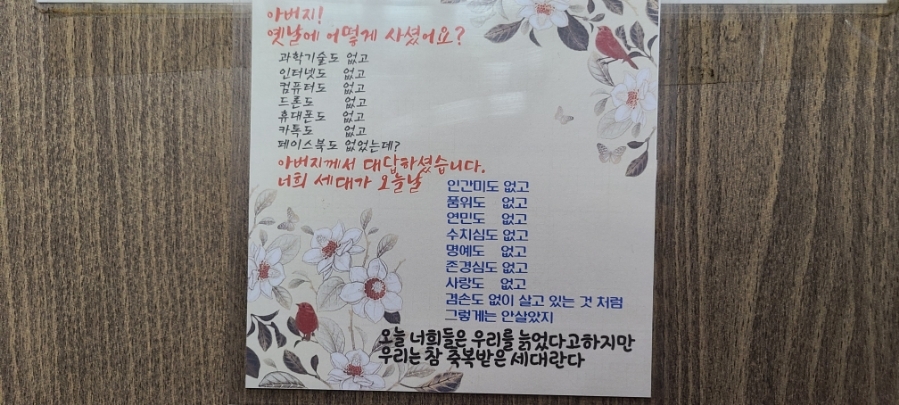 아버지!
옛날에 어떻게 사셨어요?
과학기술도 없고
인터넷도 없고
컴퓨터도 없고
드론도 없고
휴대폰도 없고
카톡도 없고
페이스북도 없었는데?
아버지께서 대답하셨습니다.
너희 세대가 오늘날
인간미도 없고
품위도 없고
연민도 없고
수치심도 없고
명예도 없고
존경심도 없고
사랑도 없고
겸손도 없이 살고 있는 것 처럼
그렇게는 안살았지
오늘 너희들은 우리를 늙었다고하지만
우리는 참 축복받은 세대란다